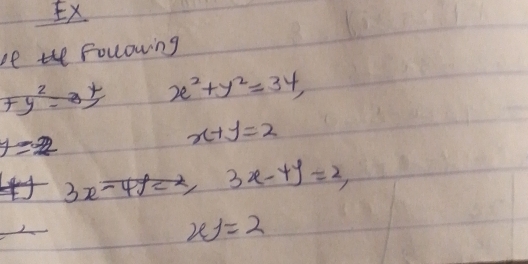 EX
the Following
x² + y² = 34,
x + y = 2
3x - 4y = 2, 3x - 4y = 2,
xy = 2